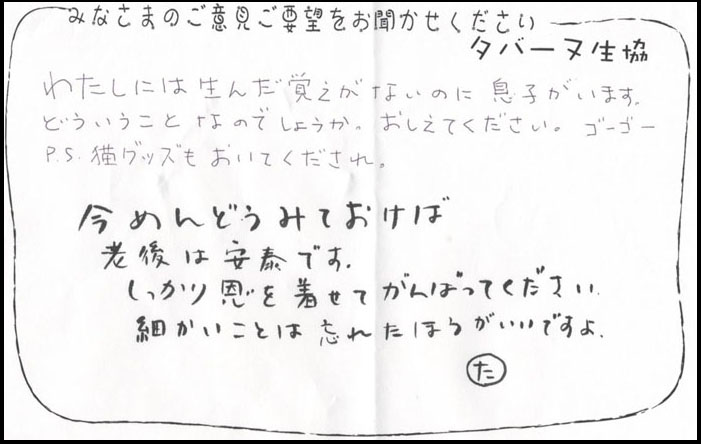 みなさまのご意見ご要望をお聞かせください
タバーヌ生協
わたしには生んだ覚えがないのに息子がいます。
どういうことなのでしょうか。おしえてください。ゴーゴー
P.S.猫グッズもおいてくだされ。
今めんどうみておけば
老後は安泰です。
しっかり恩を着せてがんばってください。
細かいことは忘れたほうがいいですよ。
た